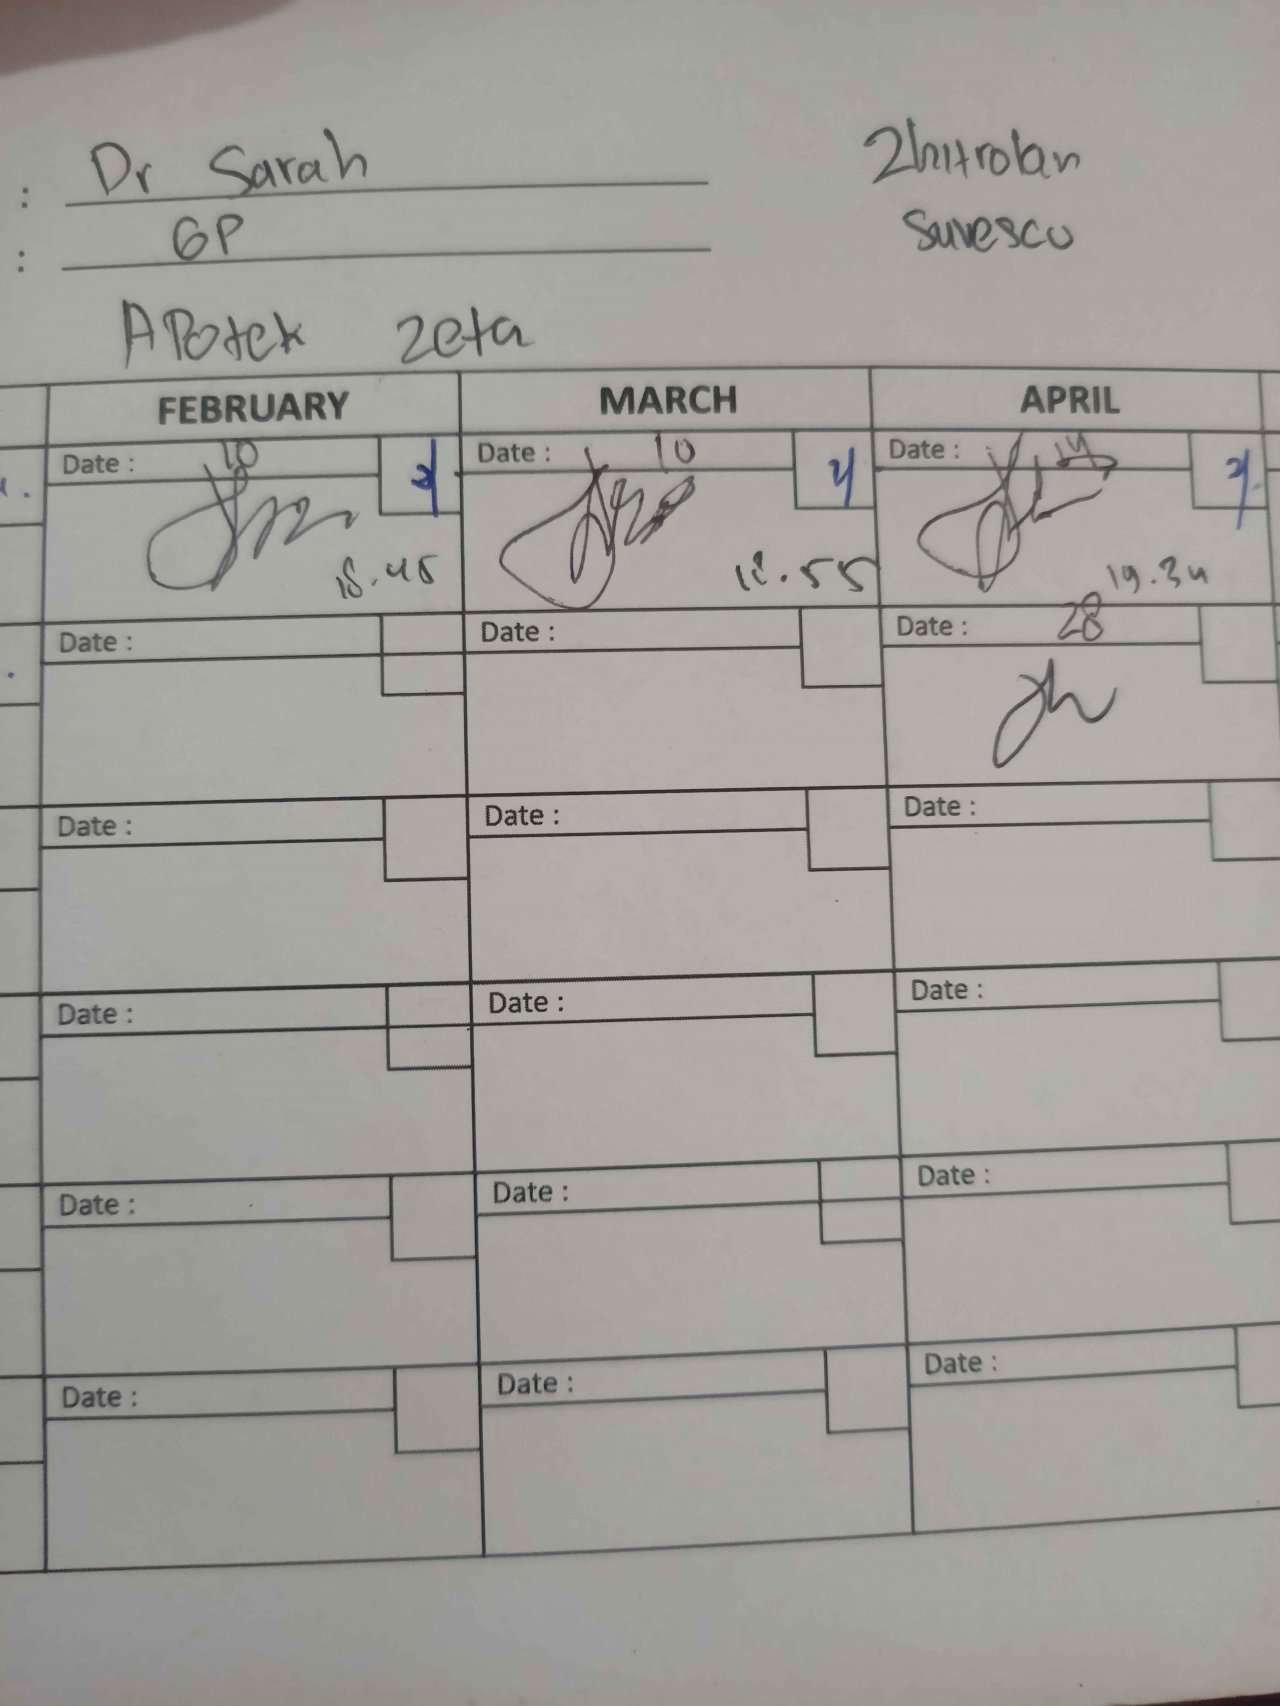 : Dr Sarah
Zhitrolan
: GP
Suvesco
Apotek Zeta
FEBRUARY MARCH APRIL
Date : 10
Date : 10
Date : 14
18.45
18.55
19.34
Date :
Date :
Date : 28
Date :
Date :
Date :
Date :
Date :
Date :
Date :
Date :
Date :
Date :
Date :
Date :